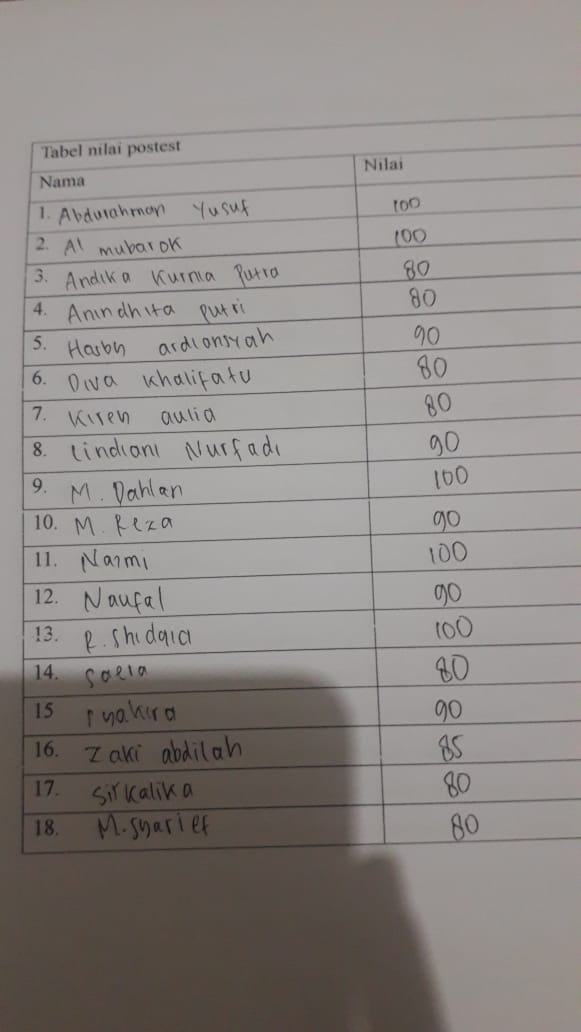 Tabel nilai postest
Nama Nilai
1. Abdurahman Yusuf 100
2. Al mubarok 100
3. Andika Kurnia Putra 80
4. Anindhita putri 80
5. ardiansyah 90
6. Diva khalifatu 80
7. Kiren aulia 80
8. Lindiani Nurfadi 90
9. M. Dahlan 100
10. M. Reza 90
11. Nazmi 100
12. Naufal 90
13. R. Shidqia 100
14. 80
15 90
16. Zaki abdilah 85
17. Sitkalika 80
18. M. syarief 80